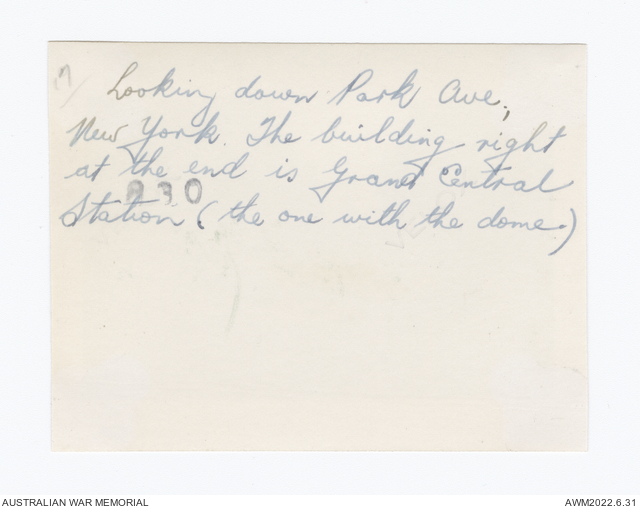 17
Looking down Park Ave,
New York. The building right
at the end is Grand Central
930
Station (the one with the dome.)
AUSTRALIAN WAR MEMORIAL
AWM2022.6.31